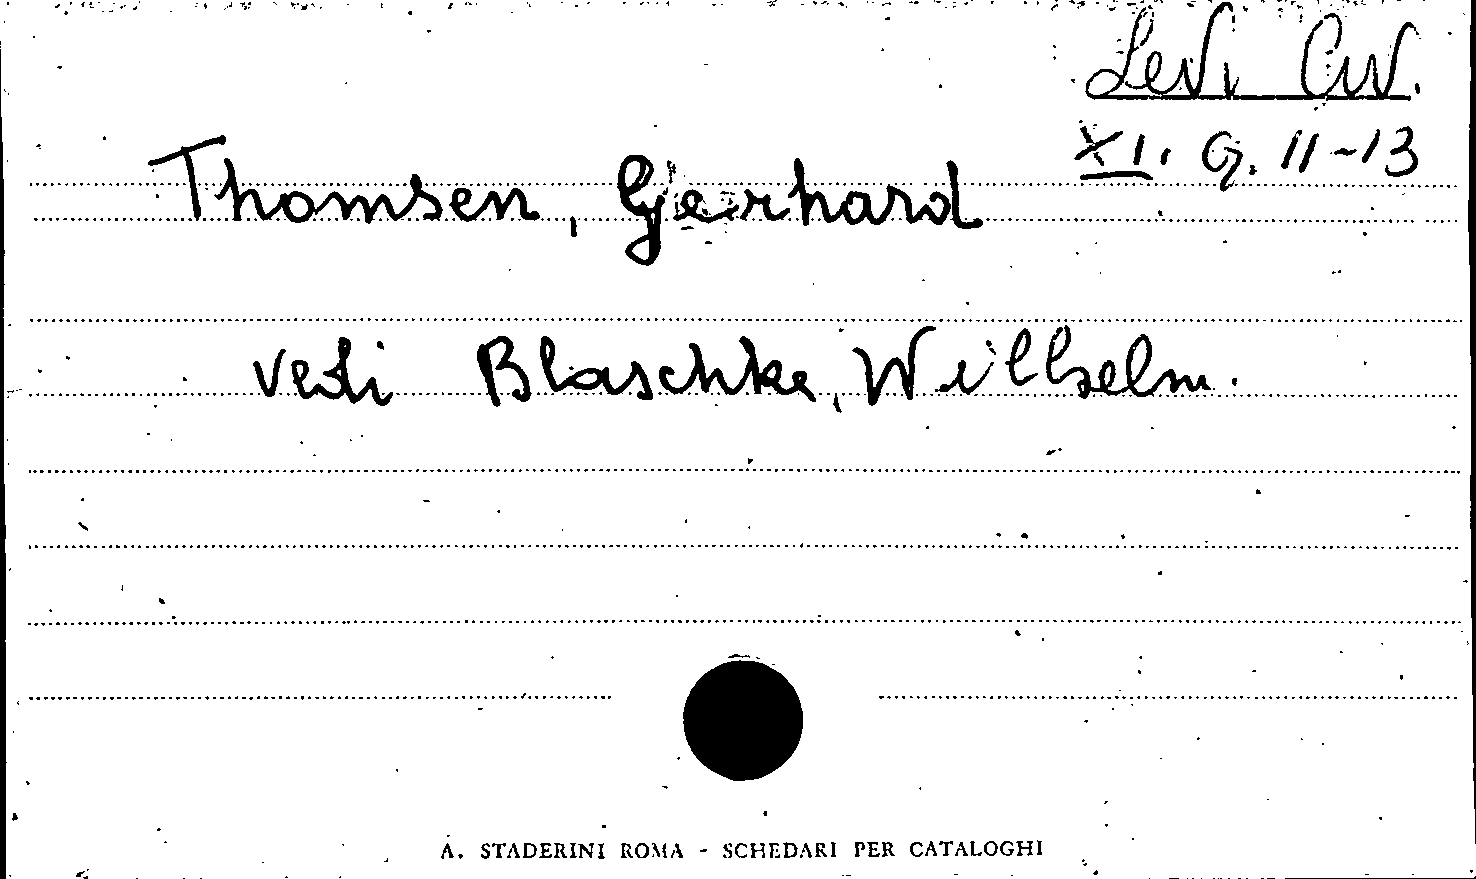 Levi Civ.
XI. G. 11-13
Thomsen, Gerhard
vedi Blaschke, Wilhelm.
A. STADERINI ROMA - SCHEDARI PER CATALOGHI